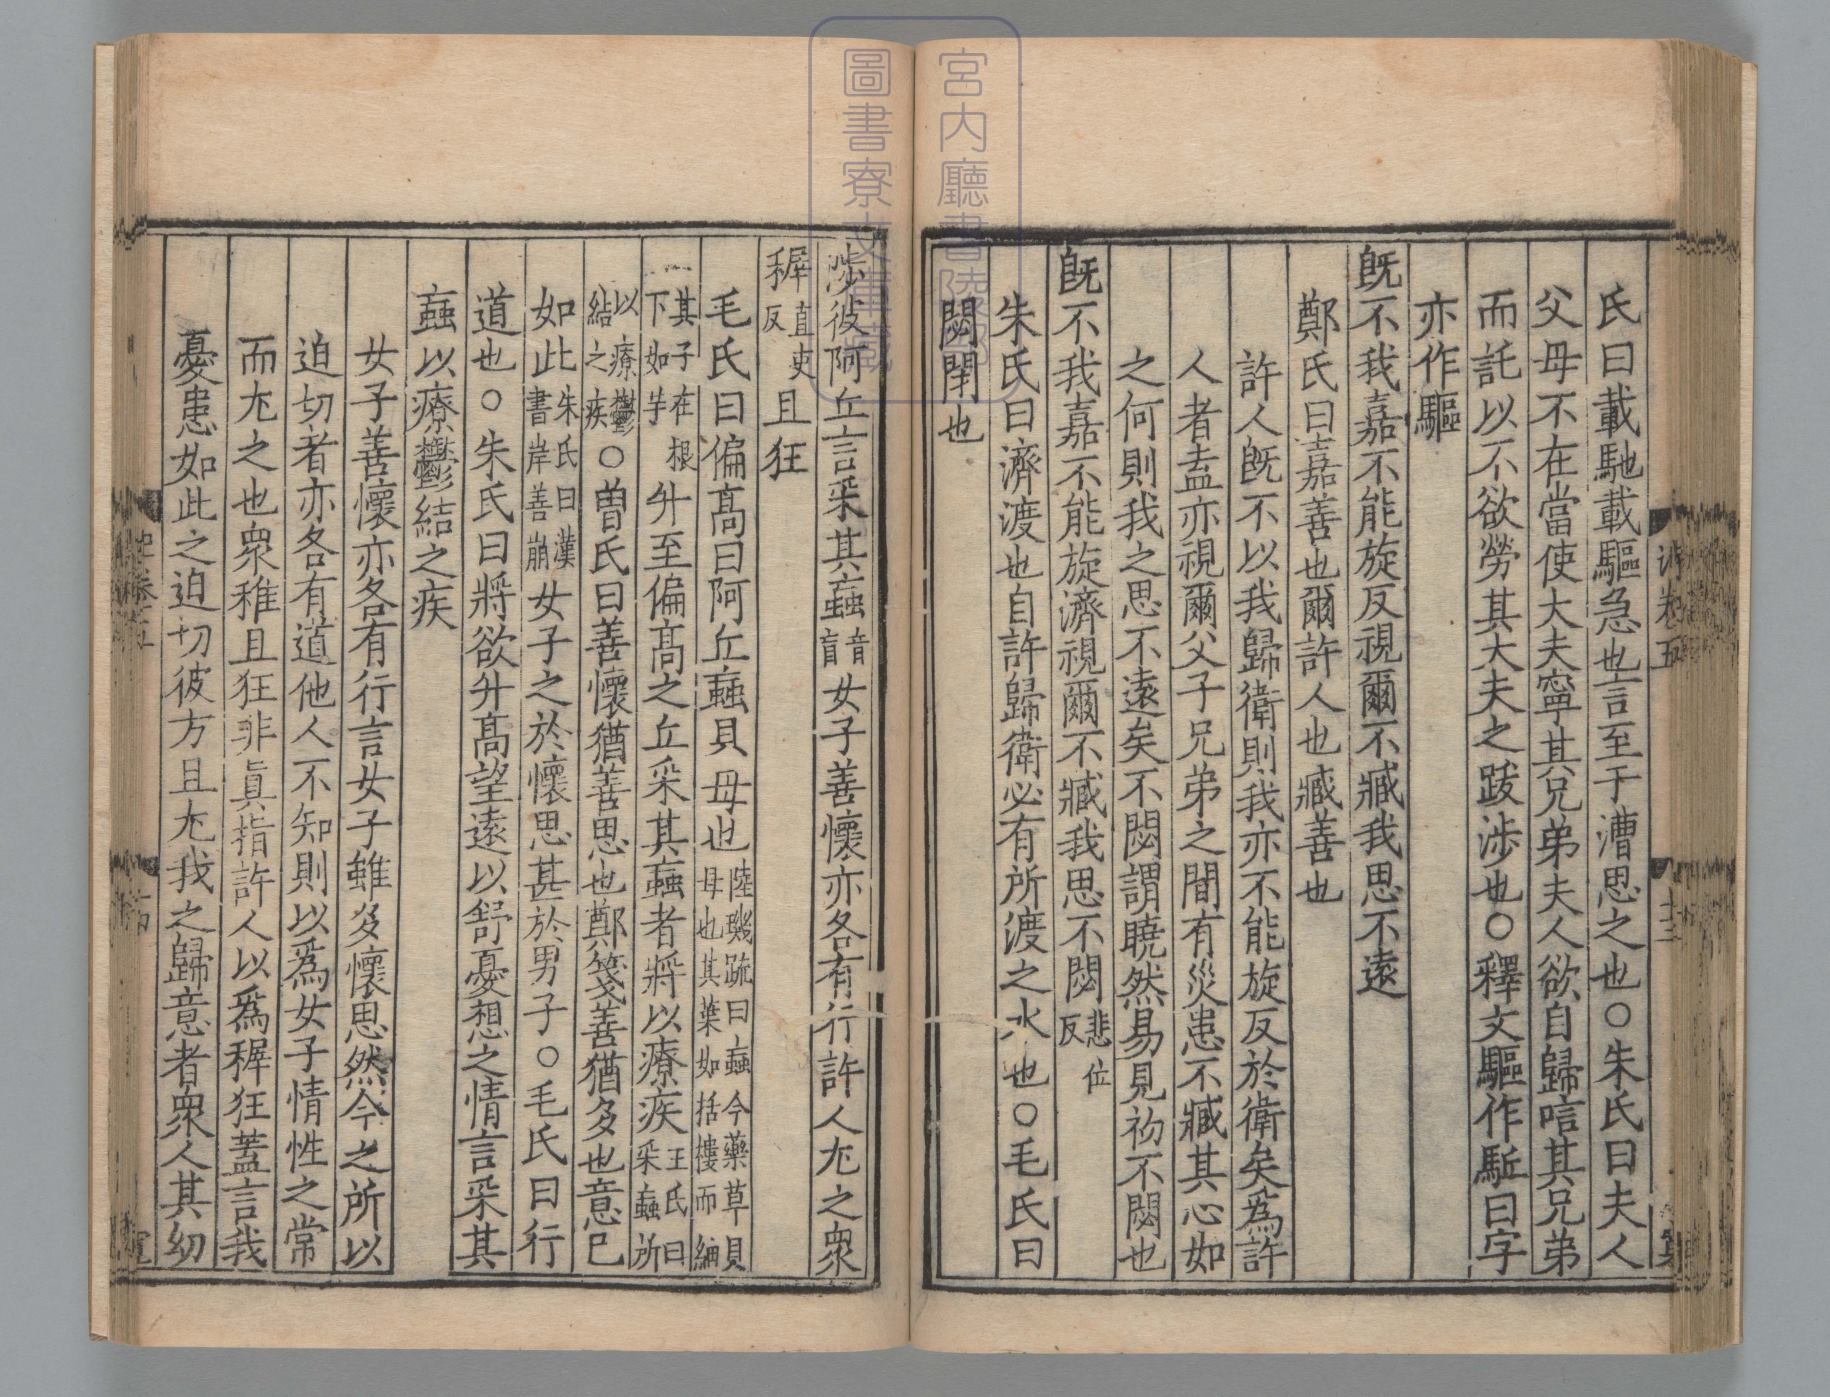 氏曰載馳載驅急也言至于漕思之也○朱氏曰夫人
父母不在當使大夫寧其兄弟夫人欲自歸唁其兄弟
而託以不欲勞其大夫之跋涉也○釋文驅作駈曰字
亦作驅
旣不我嘉不能旋反視爾不臧我思不遠
鄭氏曰嘉善也爾許人也臧善也
許人旣不以我歸衛則我亦不能旋反於衛矣為許
人者盍亦視爾父子兄弟之間有災患不臧其心如
之何則我之思不遠矣不閟謂曉然易見初不閟也
旣不我嘉不能旋濟視爾不臧我思不閟悲位反
朱氏曰濟渡也自許歸衛必有所渡之水也○毛氏曰
閟閉也
詩卷五
十三
陟彼阿丘言采其蝱音盲女子善懷亦各有行許人尤之衆
稺直吏反且狂
毛氏曰偏高曰阿丘蝱貝母也陸璣疏曰蝱今藥草貝母也其葉如括樓而細
其子在根下如芋升至偏高之丘采其蝱者將以療疾王氏曰采蝱所
以療鬱結之疾○曽氏曰善懷猶善思也鄭箋善猶多也意已
如此朱氏曰漢書岸善崩女子之於懷思甚於男子○毛氏曰行
道也○朱氏曰將欲升高望遠以舒憂想之情言采其
蝱以療鬱結之疾
女子善懷亦各有行言女子雖多懷思然今之所以
迫切者亦各有道他人不知則以為女子情性之常
而尤之也衆稚且狂非眞指許人以為稺狂蓋言我
憂患如此之迫切彼方且尤我之歸意者衆人其幼
宮内廳書陵部
圖書寮文庫藏